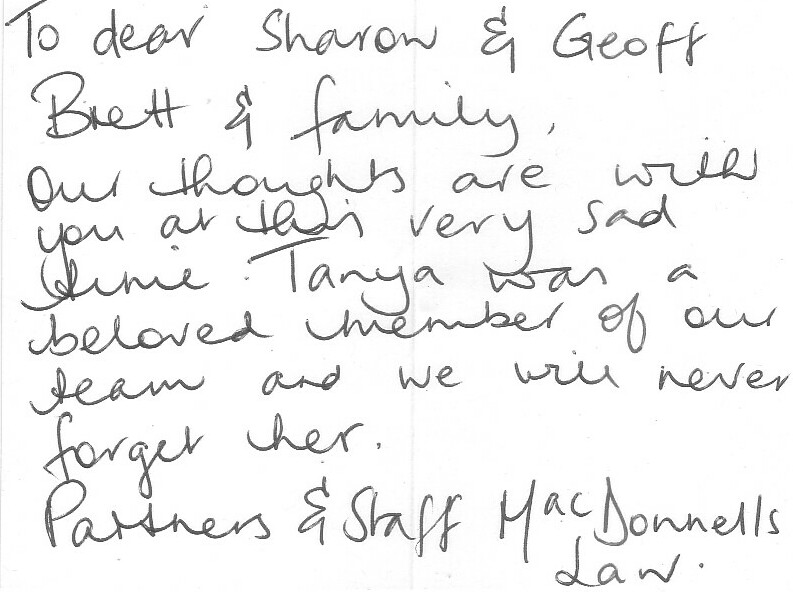 To dear Sharon & Geoff
Brett & family,
Our thoughts are with
you at this very sad
time. Tanya was a
beloved member of our
team and we will never
forget her.
Partners & Staff MacDonnells
Law.